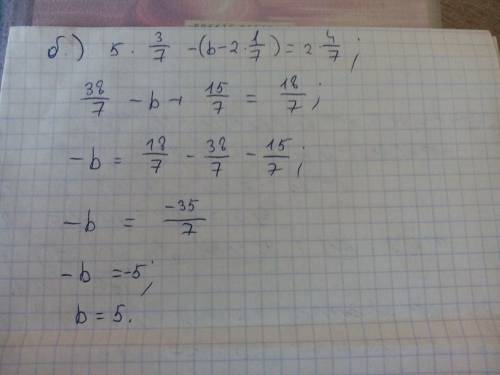 б.) 5 · 3/7 - (b - 2 · 1/7) = 2 · 4/7;
38/7 - b + 15/7 = 18/7;
-b = 18/7 - 38/7 - 15/7;
-b = -35/7
-b = -5;
b = 5.